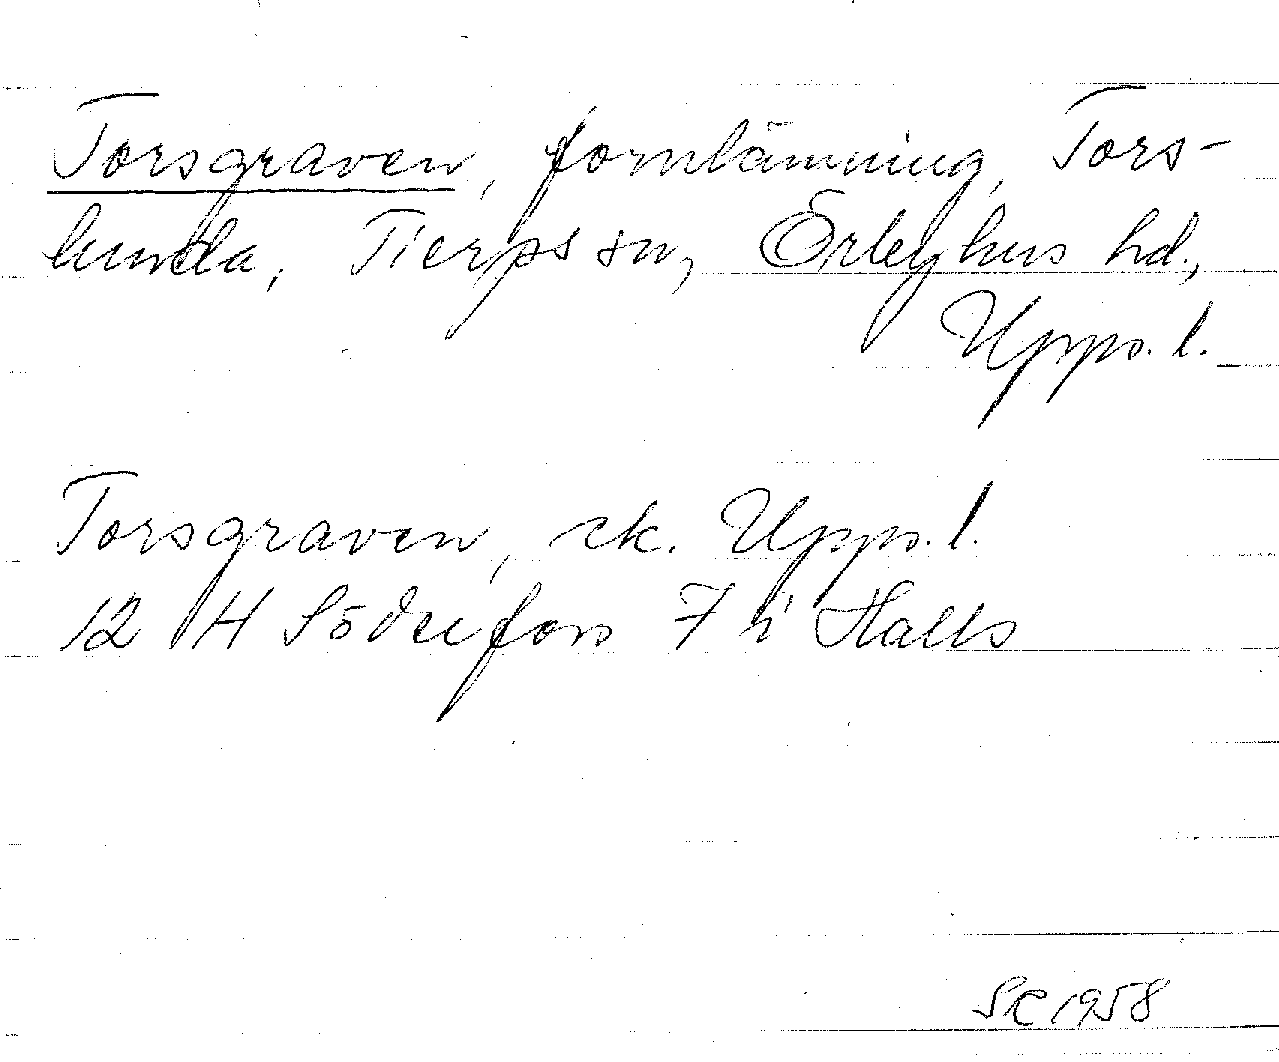 Torsgraven, fornlämning, Tors-
lunda, Tierps sn, Örbyhus hd.,
Upps. l.
Torsgraven, ek. Upps. l.
12 H Söderfors 7 h Halls
SC 1958